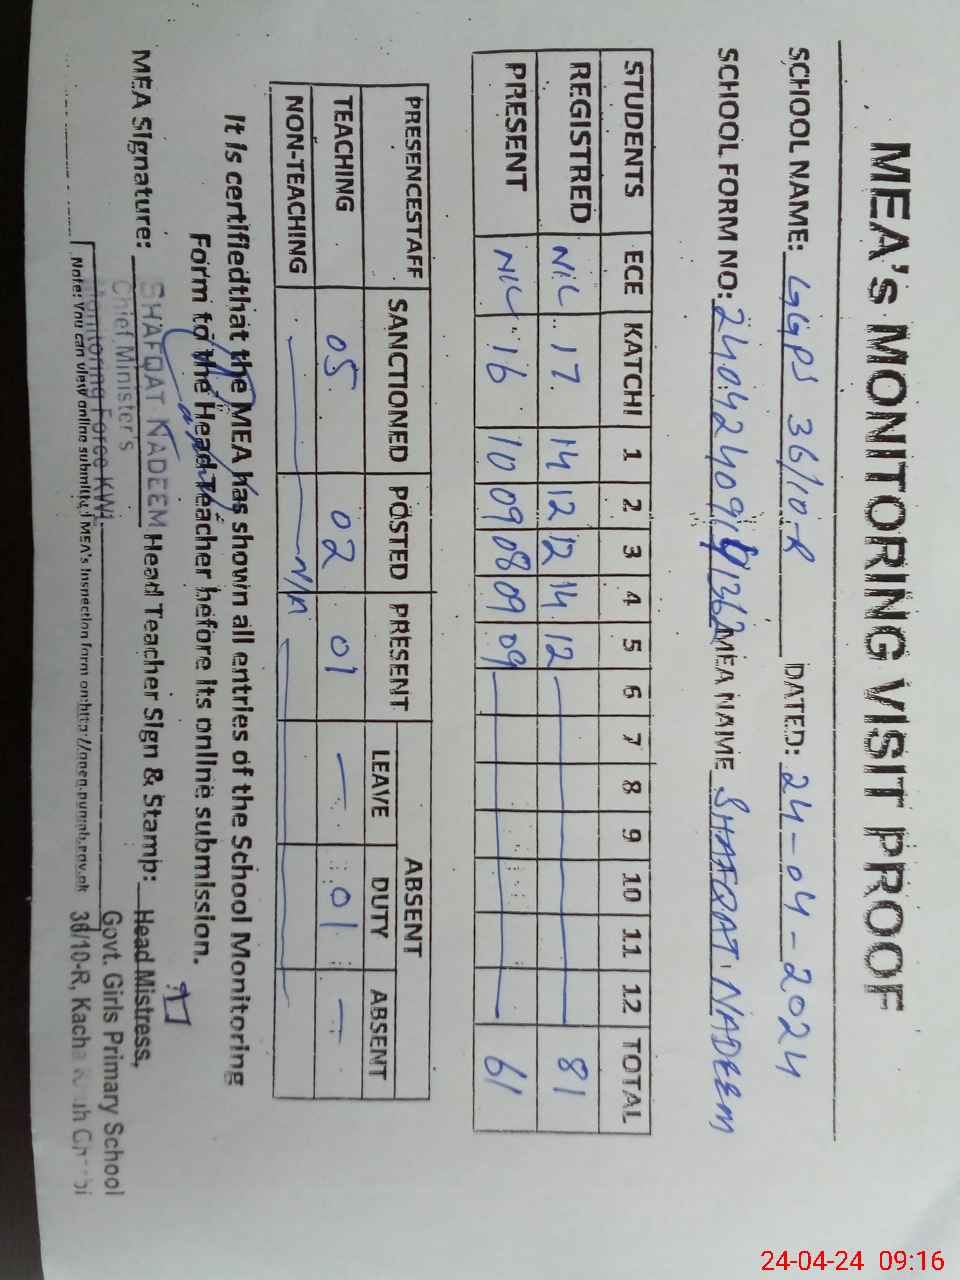 MEA's MONITORING VISIT PROOF
SCHOOL NAME: GGPS 36/10-R DATED: 24-04-2024
SCHOOL FORM NO: MEA NAME SHAFQAT NADEEM
STUDENTS ECE KATCHI 1 2 3 4 5 6 7 8 9 10 11 12 TOTAL
REGISTRED NIL 17 14 12 12 14 12 81
PRESENT NIL 16 10 09 08 09 09 61
PRESENCESTAFF SANCTIONED POSTED PRESENT ABSENT
LEAVE DUTY ABSENT
TEACHING 05 02 01 — 01 —
NON-TEACHING N/A
It is certifiedthat the MEA has shown all entries of the School Monitoring
Form to the Head Teacher before its online submission.
MEA Signature: Head Teacher Sign & Stamp: Head Mistress,
SHAFQAT NADEEM
Chief Minister's
Monitoring Force KWL
Govt. Girls Primary School
36/10-R, Kacha
Note: You can view online submitted MEA's Inspection form on:http://open.punjab.gov.pk
24-04-24 09:16